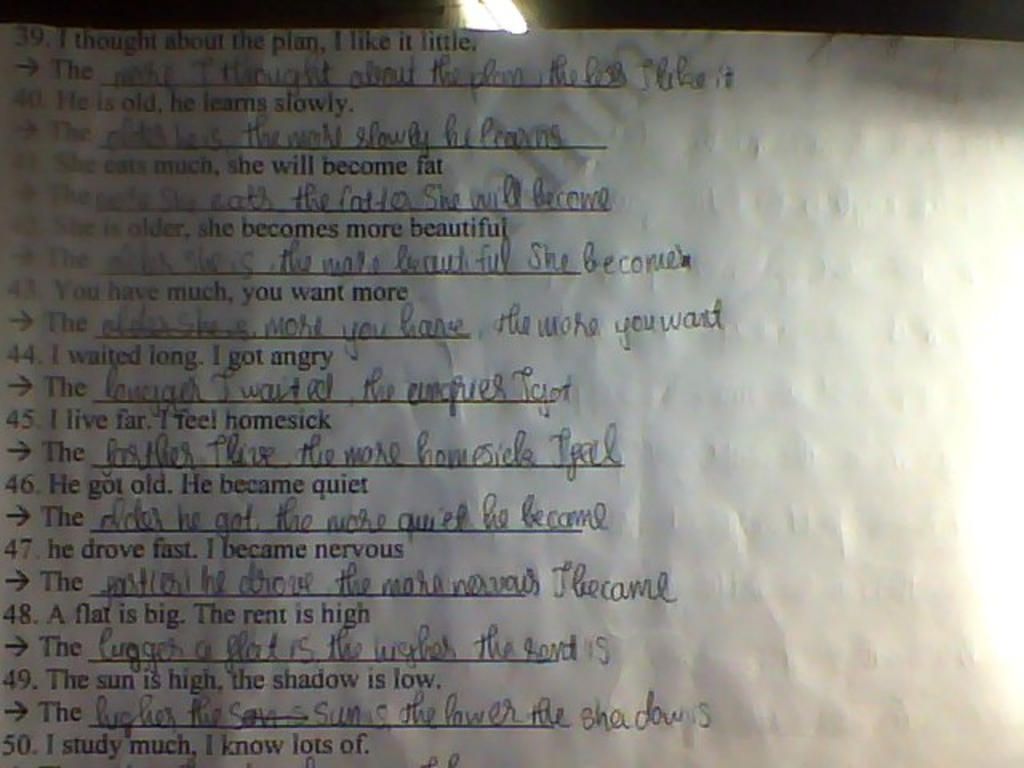 39. I thought about the plan, I like it little.
→ The more I thought about the plan, the less I like it
40. He is old, he learns slowly.
→ The older he is, the more slowly he learns
41. She eats much, she will become fat
→ The more She eats the fatter She will become
42. She is older, she becomes more beautiful
→ The older she is, the more beautiful She becomes
43. You have much, you want more
→ The more you have, the more you want
44. I waited long. I got angry
→ The I waited, the I got
45. I live far. I feel homesick
→ The farther I live the more homesick I feel
46. He got old. He became quiet
→ The older he got, the more quiet he became
47. he drove fast. I became nervous
→ The he drove, the more nervous I became
48. A flat is big. The rent is high
→ The a flat is, the higher the rent is
49. The sun is high, the shadow is low.
→ The higher the sun is, the lower the shadow is
50. I study much, I know lots of.